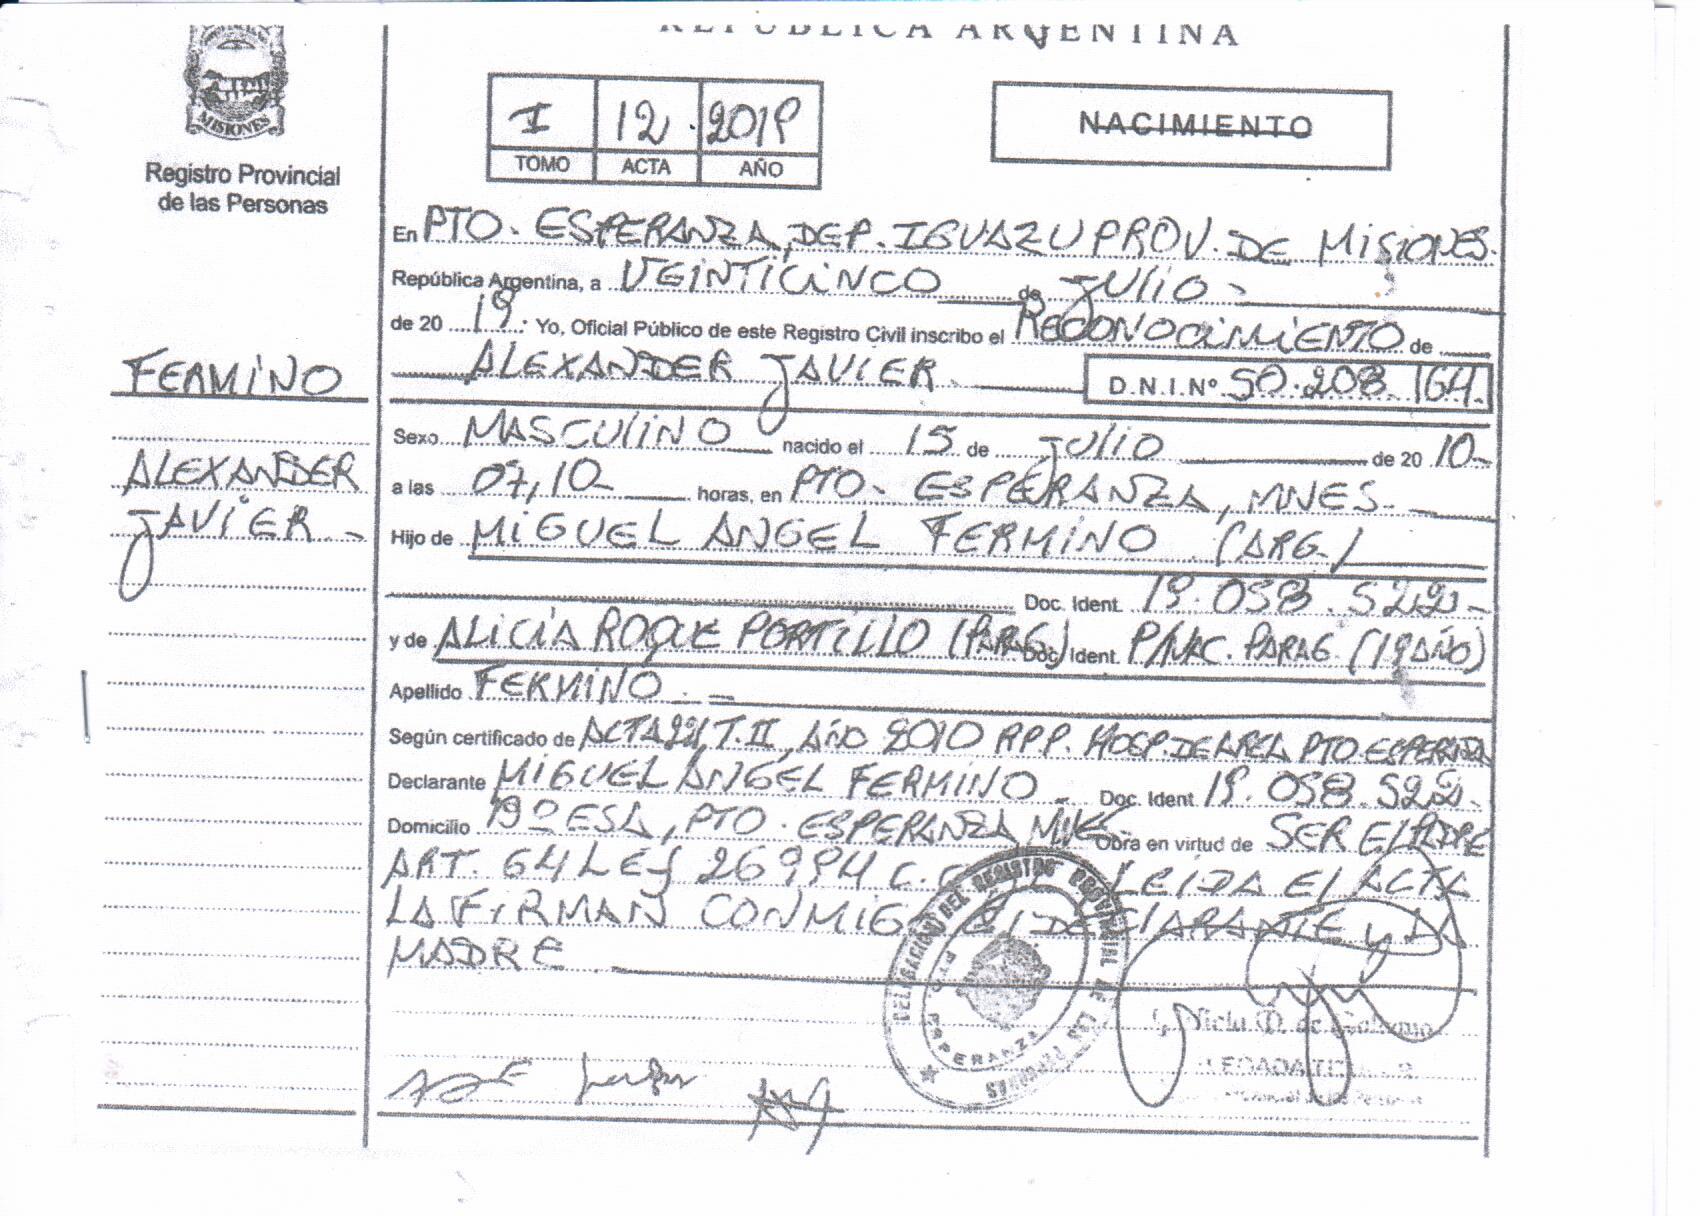 REPÚBLICA ARGENTINA
MISIONES
Registro Provincial
de las Personas
I 12. 2019
TOMO ACTA AÑO
NACIMIENTO
En PTO. ESPERANZA, DEP. IGUAZU PROV. DE MISIONES.
República Argentina, a VEINTICINCO de JULIO -
de 20 19. Yo, Oficial Público de este Registro Civil inscribo el RECONOCIMIENTO de
ALEXANDER JAVIER. D.N.I.Nº 50.208.164.
FERMINO
ALEXANDER
JAVIER -
Sexo MASCULINO nacido el 15 de JULIO de 20 10-
a las 07,10 horas, en PTO. ESPERANZA, MNES. -
Hijo de MIGUEL ANGEL FERMINO (ARG.)
Doc. Ident. 19.058.522-
y de ALICIA ROQUE PORTILLO (PARAG) Doc. Ident. P/NAC. PARAG. (19 AÑO)
Apellido FERMINO. -
Según certificado de ACTA 221, T. II, AÑO 2010 RPP. HOSP. DE AREA PTO ESPERANZA
Declarante MIGUEL ANGEL FERMINO - Doc. Ident 19.058.522-
Domicilio Bº ESA, PTO. ESPERANZA MNES. Obra en virtud de SER El PADRE
ART. 64 LEY 26994 C. LEIDA El ACTA
LA FIRMAN CONMIGO El DECLARANTE y LA
MADRE
DELEGACION DEL REGISTRO PROVINCIAL DE LAS PERSONAS
PTO. ESPERANZA